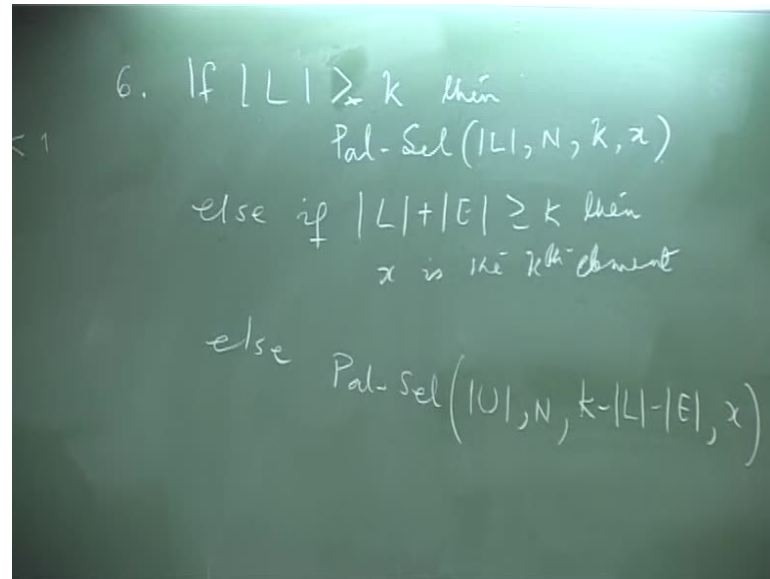 6. If |L| ≥ k then
< 1
Pal-Sel(|L|, N, k, x)
else if |L|+|E| ≥ k then
x is the kth element
else Pal-Sel(|U|, N, k-|L|-|E|, x)